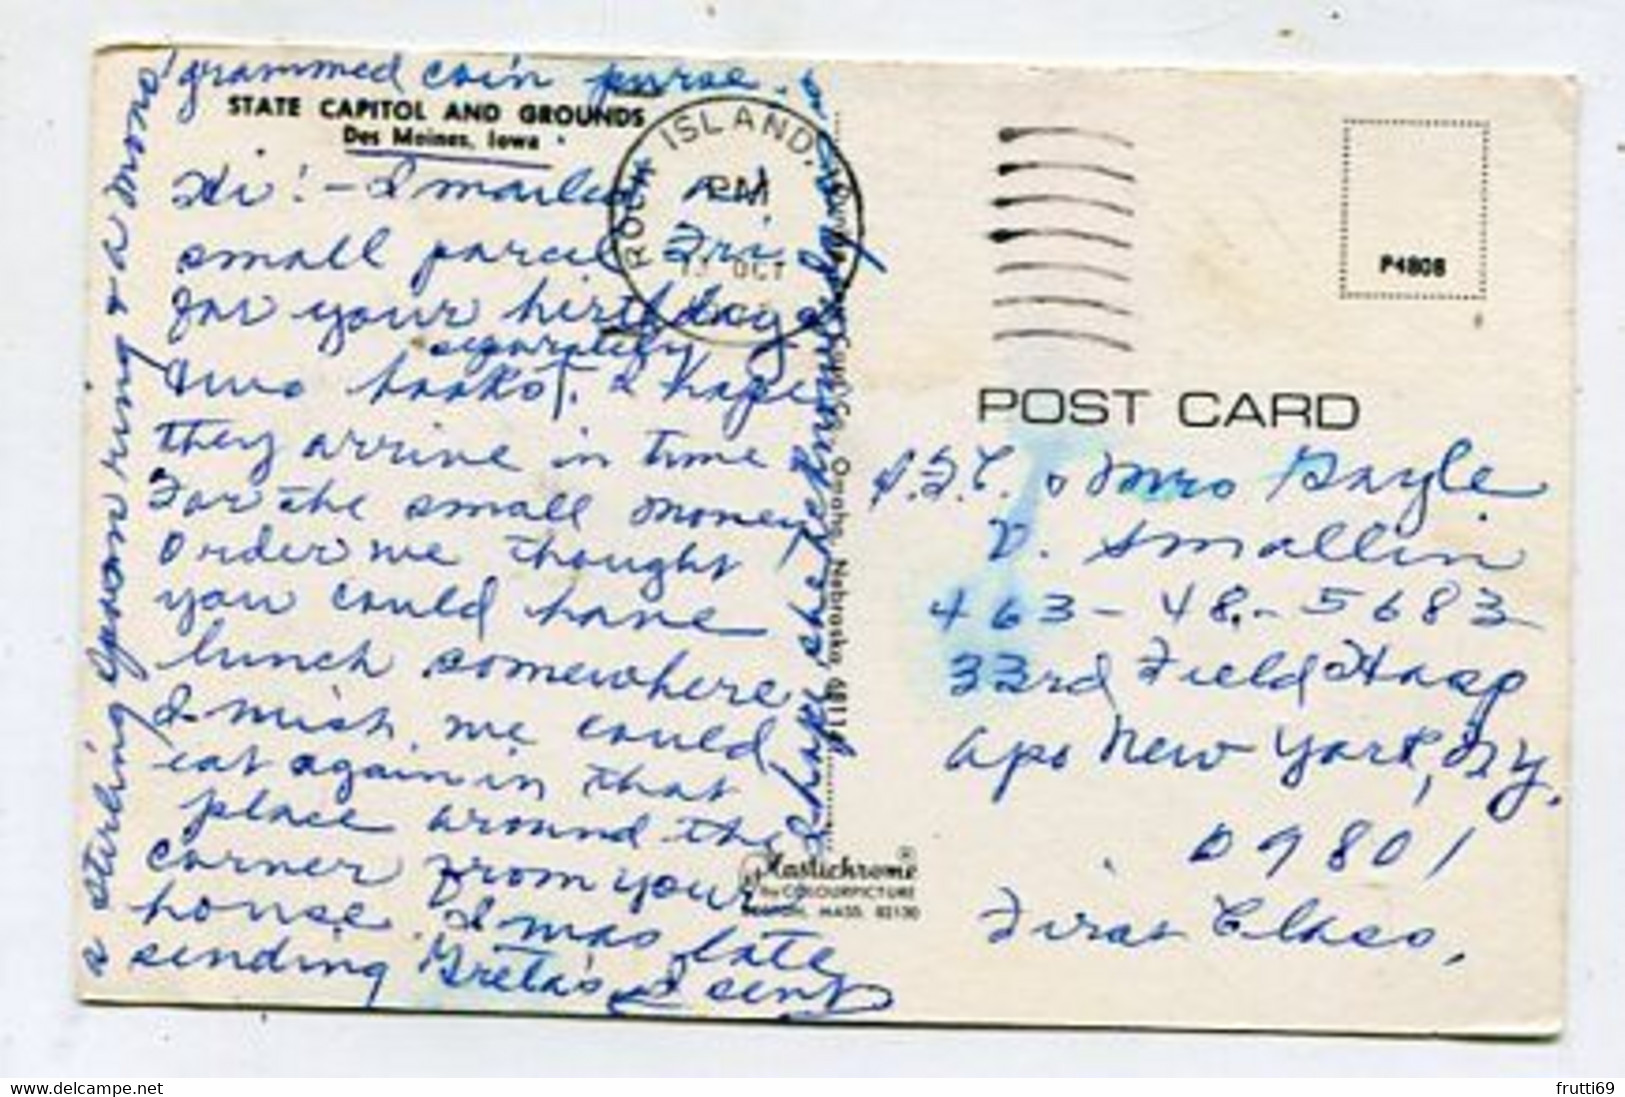 STATE CAPITOL AND GROUNDS
Des Moines, Iowa
Hi! - I mailed a
small parcel Fri.
for your birthday &
two books separately. I hope
they arrive in time
For the small money
order we thought
you could have
lunch somewhere
I wish we could
eat again in that
place around the
corner from your
house. I was late
sending Greta's I sent
a sterling spoon ring & a mono
grammed coin purse.
I hope she
ROCK ISLAND,
PM
OCT
Omaha, Nebraska
Plastichrome®
by COLOURPICTURE
BOSTON, MASS. 02130
P4808
POST CARD
& Mrs Gayle
D. Smallin
463-48-5683
33rd Field Hosp
Apo New York, N.Y.
09801
First Class.
frutti69
www.delcampe.net